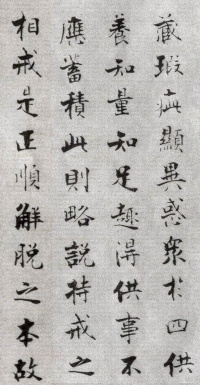 藏瑕疵顯異惑衆於四供
養知量知足趣得供事不
應蓄積此則略說持戒之
相戒是正順解脫之本故